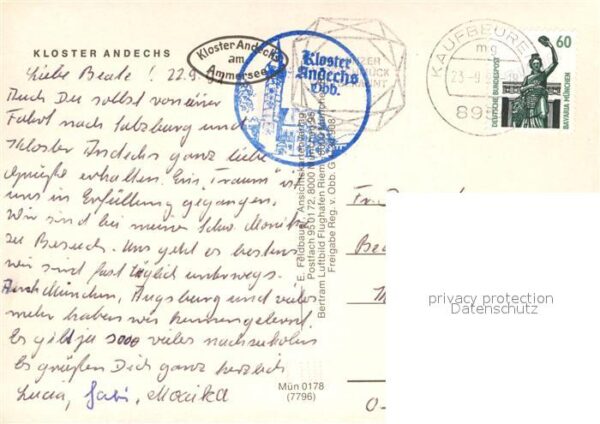 KLOSTER ANDECHS
Kloster Andechs
am
Ammersee
Kloster
Andechs
Obb.
KAUFBEUREN
mg
23.-9.
895
60
DEUTSCHE BUNDESPOST
BAVARIA MÜNCHEN
Liebe Beate! 22.9.
Auch Du sollst von einer
Fahrt nach Salzburg und
Kloster Andechs ganz liebe
Grüße erhalten. Ein "Traum" ist
uns in Erfüllung gegangen.
Wir sind bei meiner Schw. Monika
zu Besuch. Uns geht es bestens
wir sind fast täglich unterwegs.
Auch München, Augsburg und vieles
mehr haben wir kennengelernt.
Es gibt ja sooo vieles nachzuholen
Es grüßen Dich ganz herzlich
Lucia, Gabi, Monika
E. Feldbauer, Ansichtskartenverlag
Postfach 95 01 72, 8000 München
Bertram Luftbild Flughafen Riem
Freigabe Reg. v. Obb. G
Mün 0178
(7796)
Fr.
Be
O-
privacy protection
Datenschutz